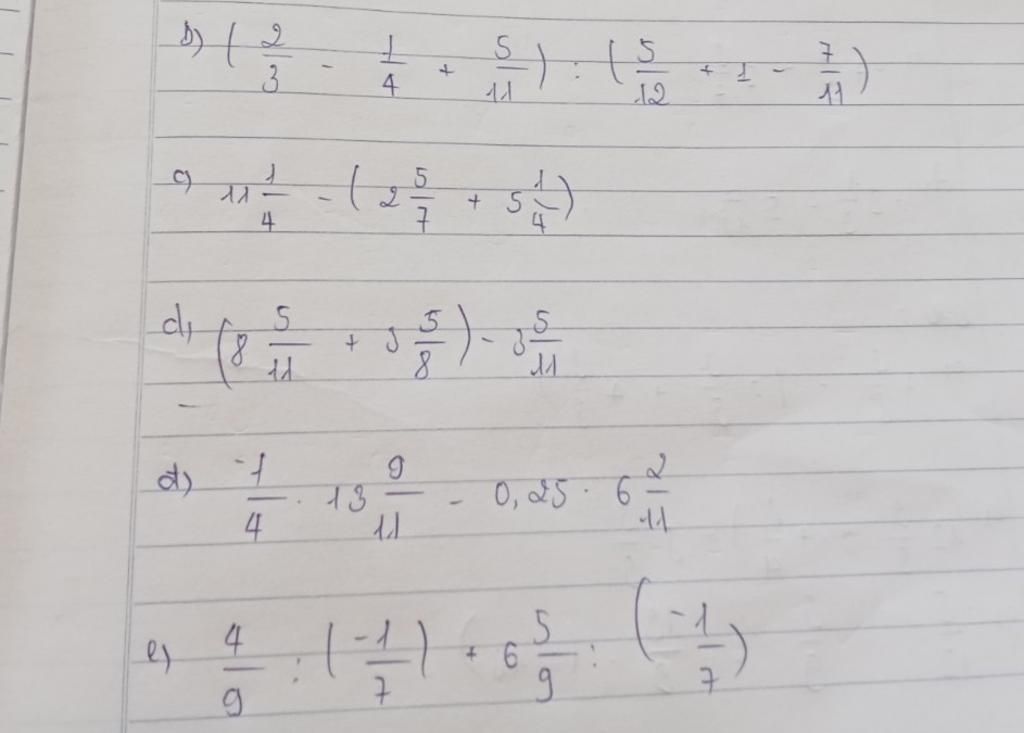 b) ( 2/3 - 1/4 + 5/11 ) : ( 5/12 + 1 - 7/11 )
c) 11 1/4 - ( 2 5/7 + 5 1/4 )
d) ( 8 5/11 + 3 5/8 ) - 3 5/11
đ) -1/4 . 13 9/11 - 0,25 . 6 2/11
e) 4/9 : ( -1/7 ) + 6 5/9 : ( -1/7 )